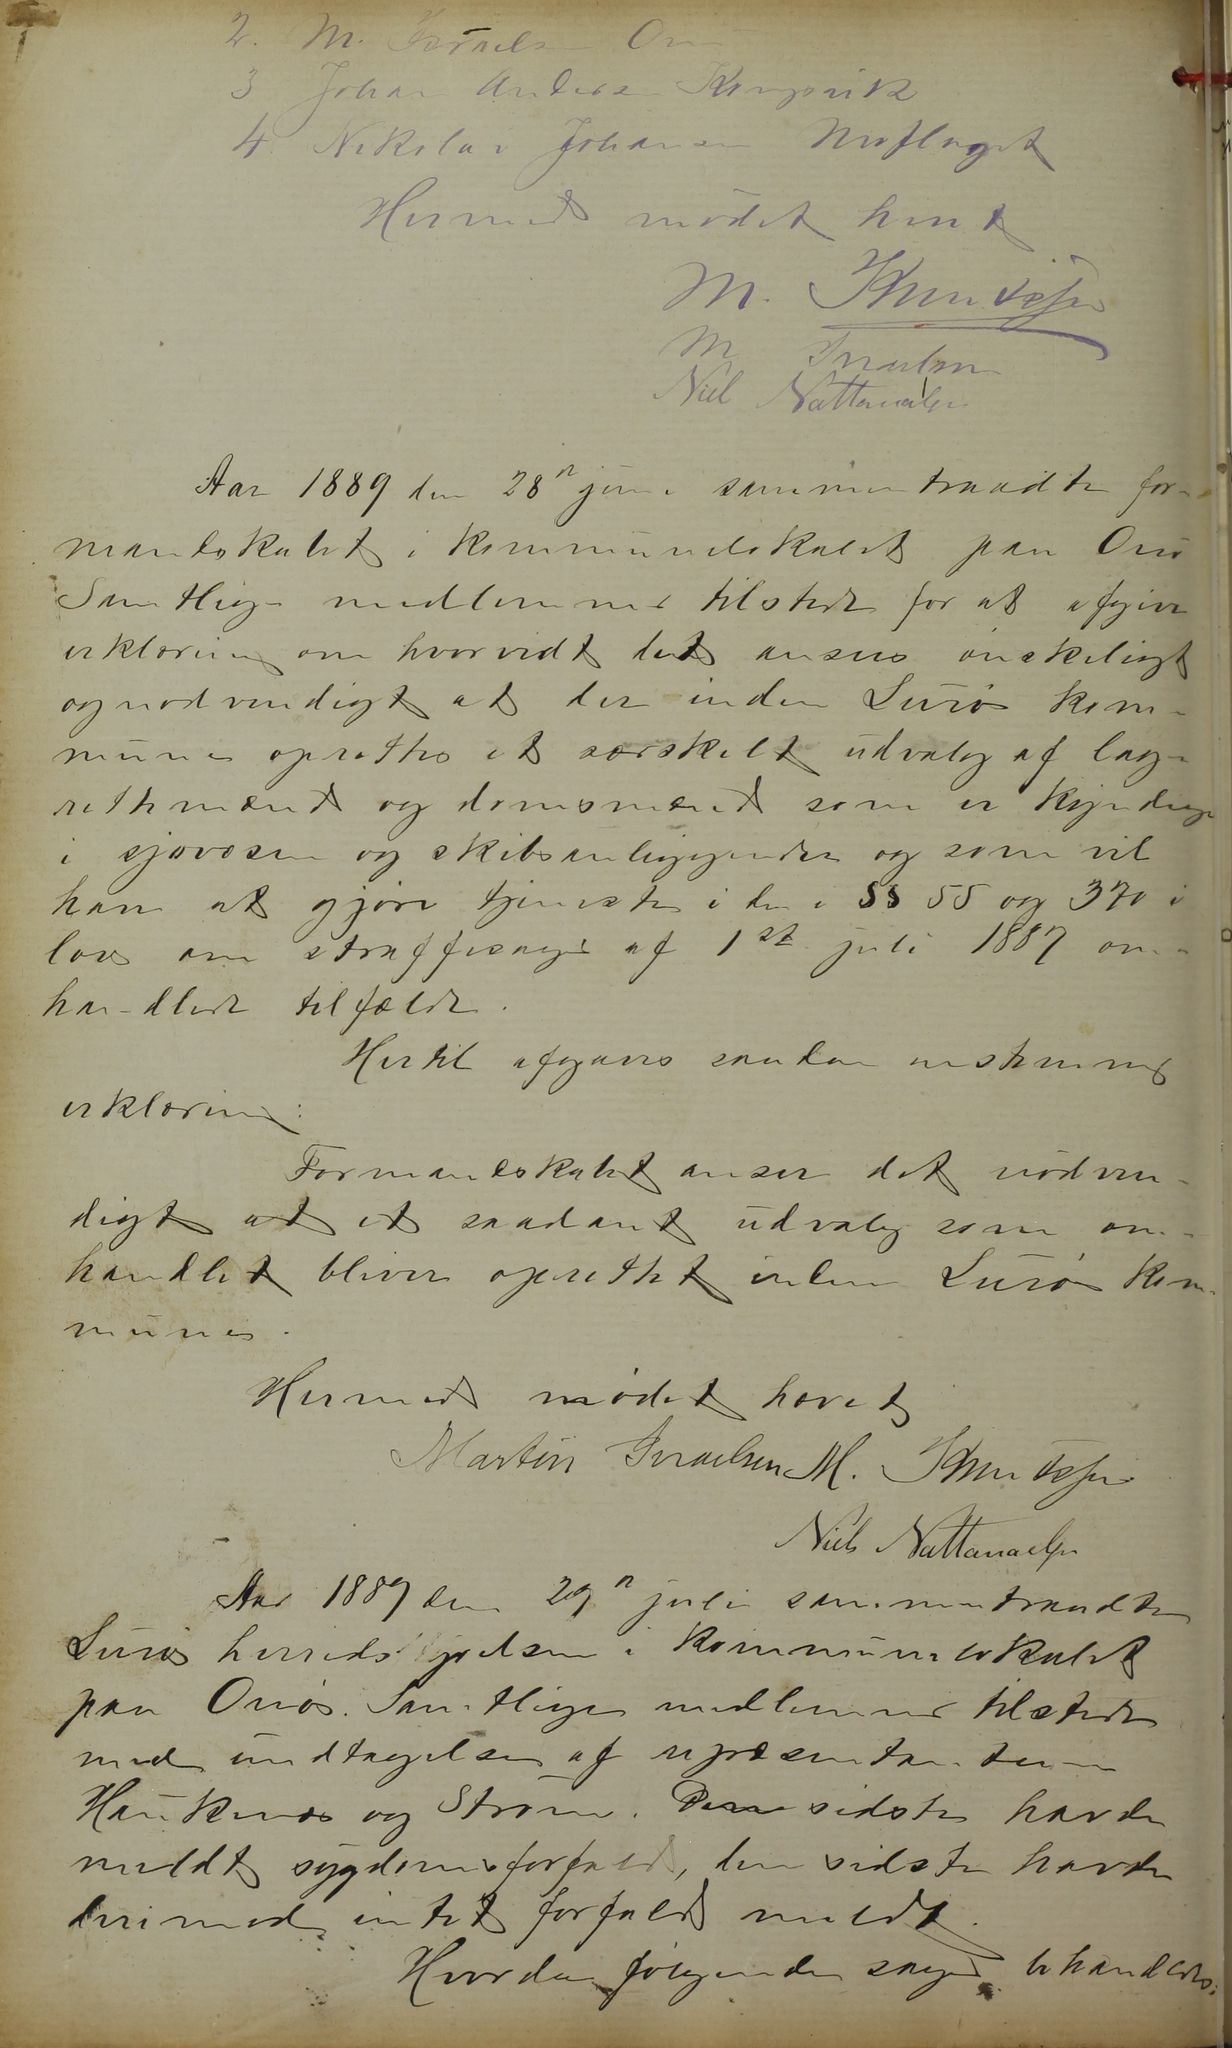 2. M. Israels Onø
3 Johan Anders Kongsvik
4. Nikolai Johansen
Hermed mødet hævet
M. Knudssen
M Israelsen
Niel Nattanaelsen
Aar 1889 den 28n juni sammentraadte for-
mandskabet i kommunelokalet paa Onø
Samtlige medlemmer tilstede for at afgive
erklæring om hvorvidt det ansees ønskeligt
og nødvendigt at der inden Lurø kom-
mune oprettes et særskilt udvalg af lag-
rettemænd og domsmænd som er kyndige
i sjøvæsen og skibsanliggender og som vil
have at gjøre tjeneste i de i §§ 55 og 370 i
lov om straffesager af 1st juli 1887 om-
handlede tilfælde.
Hertil afgaves saadan enstemmig
erklæring:
Formandskabet anser det nødven-
digt at et saadant udvalg som om-
handlet bliver oprettet inden Lurø kom-
mune.
Hermed mødet hævet
Martin Israelsen M. Knudssen
Niels Nattanaelsen
Aar 1889 den 29n juli sammentraadte
Lurø herredsstyrelse i kommunelokalet
paa Onø. Samtlige medlemmer tilstede
med undtagelse af repræsentanterne
Haukenæs og Strøm. sidste havde
meldt sygdomsforfald, den sidste havde
derimod intet forfald meldt.
Hvorda følgende sager behandledes: